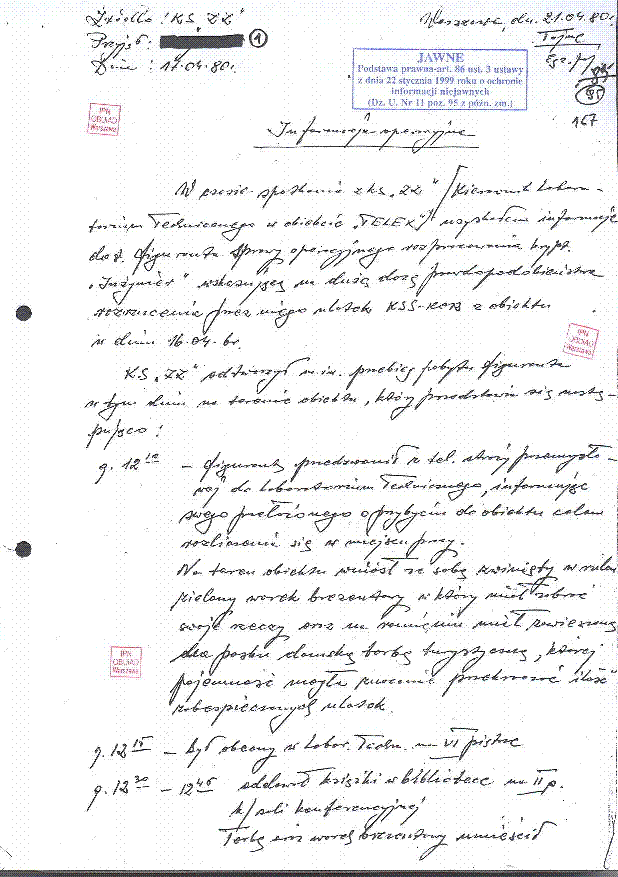 Źródło: KS "ZZ"
Przyjął: 1
Dnia: 17.04.80r.
Warszawa, dn. 21.04.80r.
Tajne
Egz. Nr
167
JAWNE
Podstawa prawna-art. 86 ust. 3 ustawy
z dnia 22 stycznia 1999 roku o ochronie
informacji niejawnych
(Dz. U. Nr 11 poz. 95 z późn. zm.)
IPN
OBUiAD
Warszawa
Informacja operacyjna
W czasie spotkania z KS "ZZ" /Kierownik Labora-
torium Technicznego w obiekcie "TELEX"/ uzyskałem informację
dot. figuranta sprawy operacyjnego rozpracowania krypt.
"Inżynier" wskazującą na dużą dozę prawdopodobieństwa
rozrzucenia przez niego ulotek KSS-KOR z obiektu
w dniu 16.04. br.
IPN
OBUiAD
Warszawa
KS "ZZ" odtworzył m.in. przebieg pobytu figuranta
w tym dniu na terenie obiektu, który przedstawia się nastę-
pująco:
g. 12 10 - figurant, przedzwonił z tel. straży przemysło-
wej do Laboratorium Technicznego, informując
swego przełożonego o przybyciu do obiektu celem
rozliczenia się w miejscu pracy.
Na teren obiektu wniósł ze sobą zwinięty w rulon
zielony worek brezentowy w który miał zabrać
swoje rzeczy oraz na ramieniu miał zawieszoną
na pasku damską torbę turystyczną, której
pojemność mogła znacznie przekroczyć ilość
zabezpieczonych ulotek.
IPN
OBUiAD
Warszawa
g. 12 15 - był obecny w Labor. Techn. na VI piętrze
g. 12 30 - 12 45 oddawał książki w bibliotece na II p.
k/ sali konferencyjnej
Torbę oraz worek brezentowy umieścił